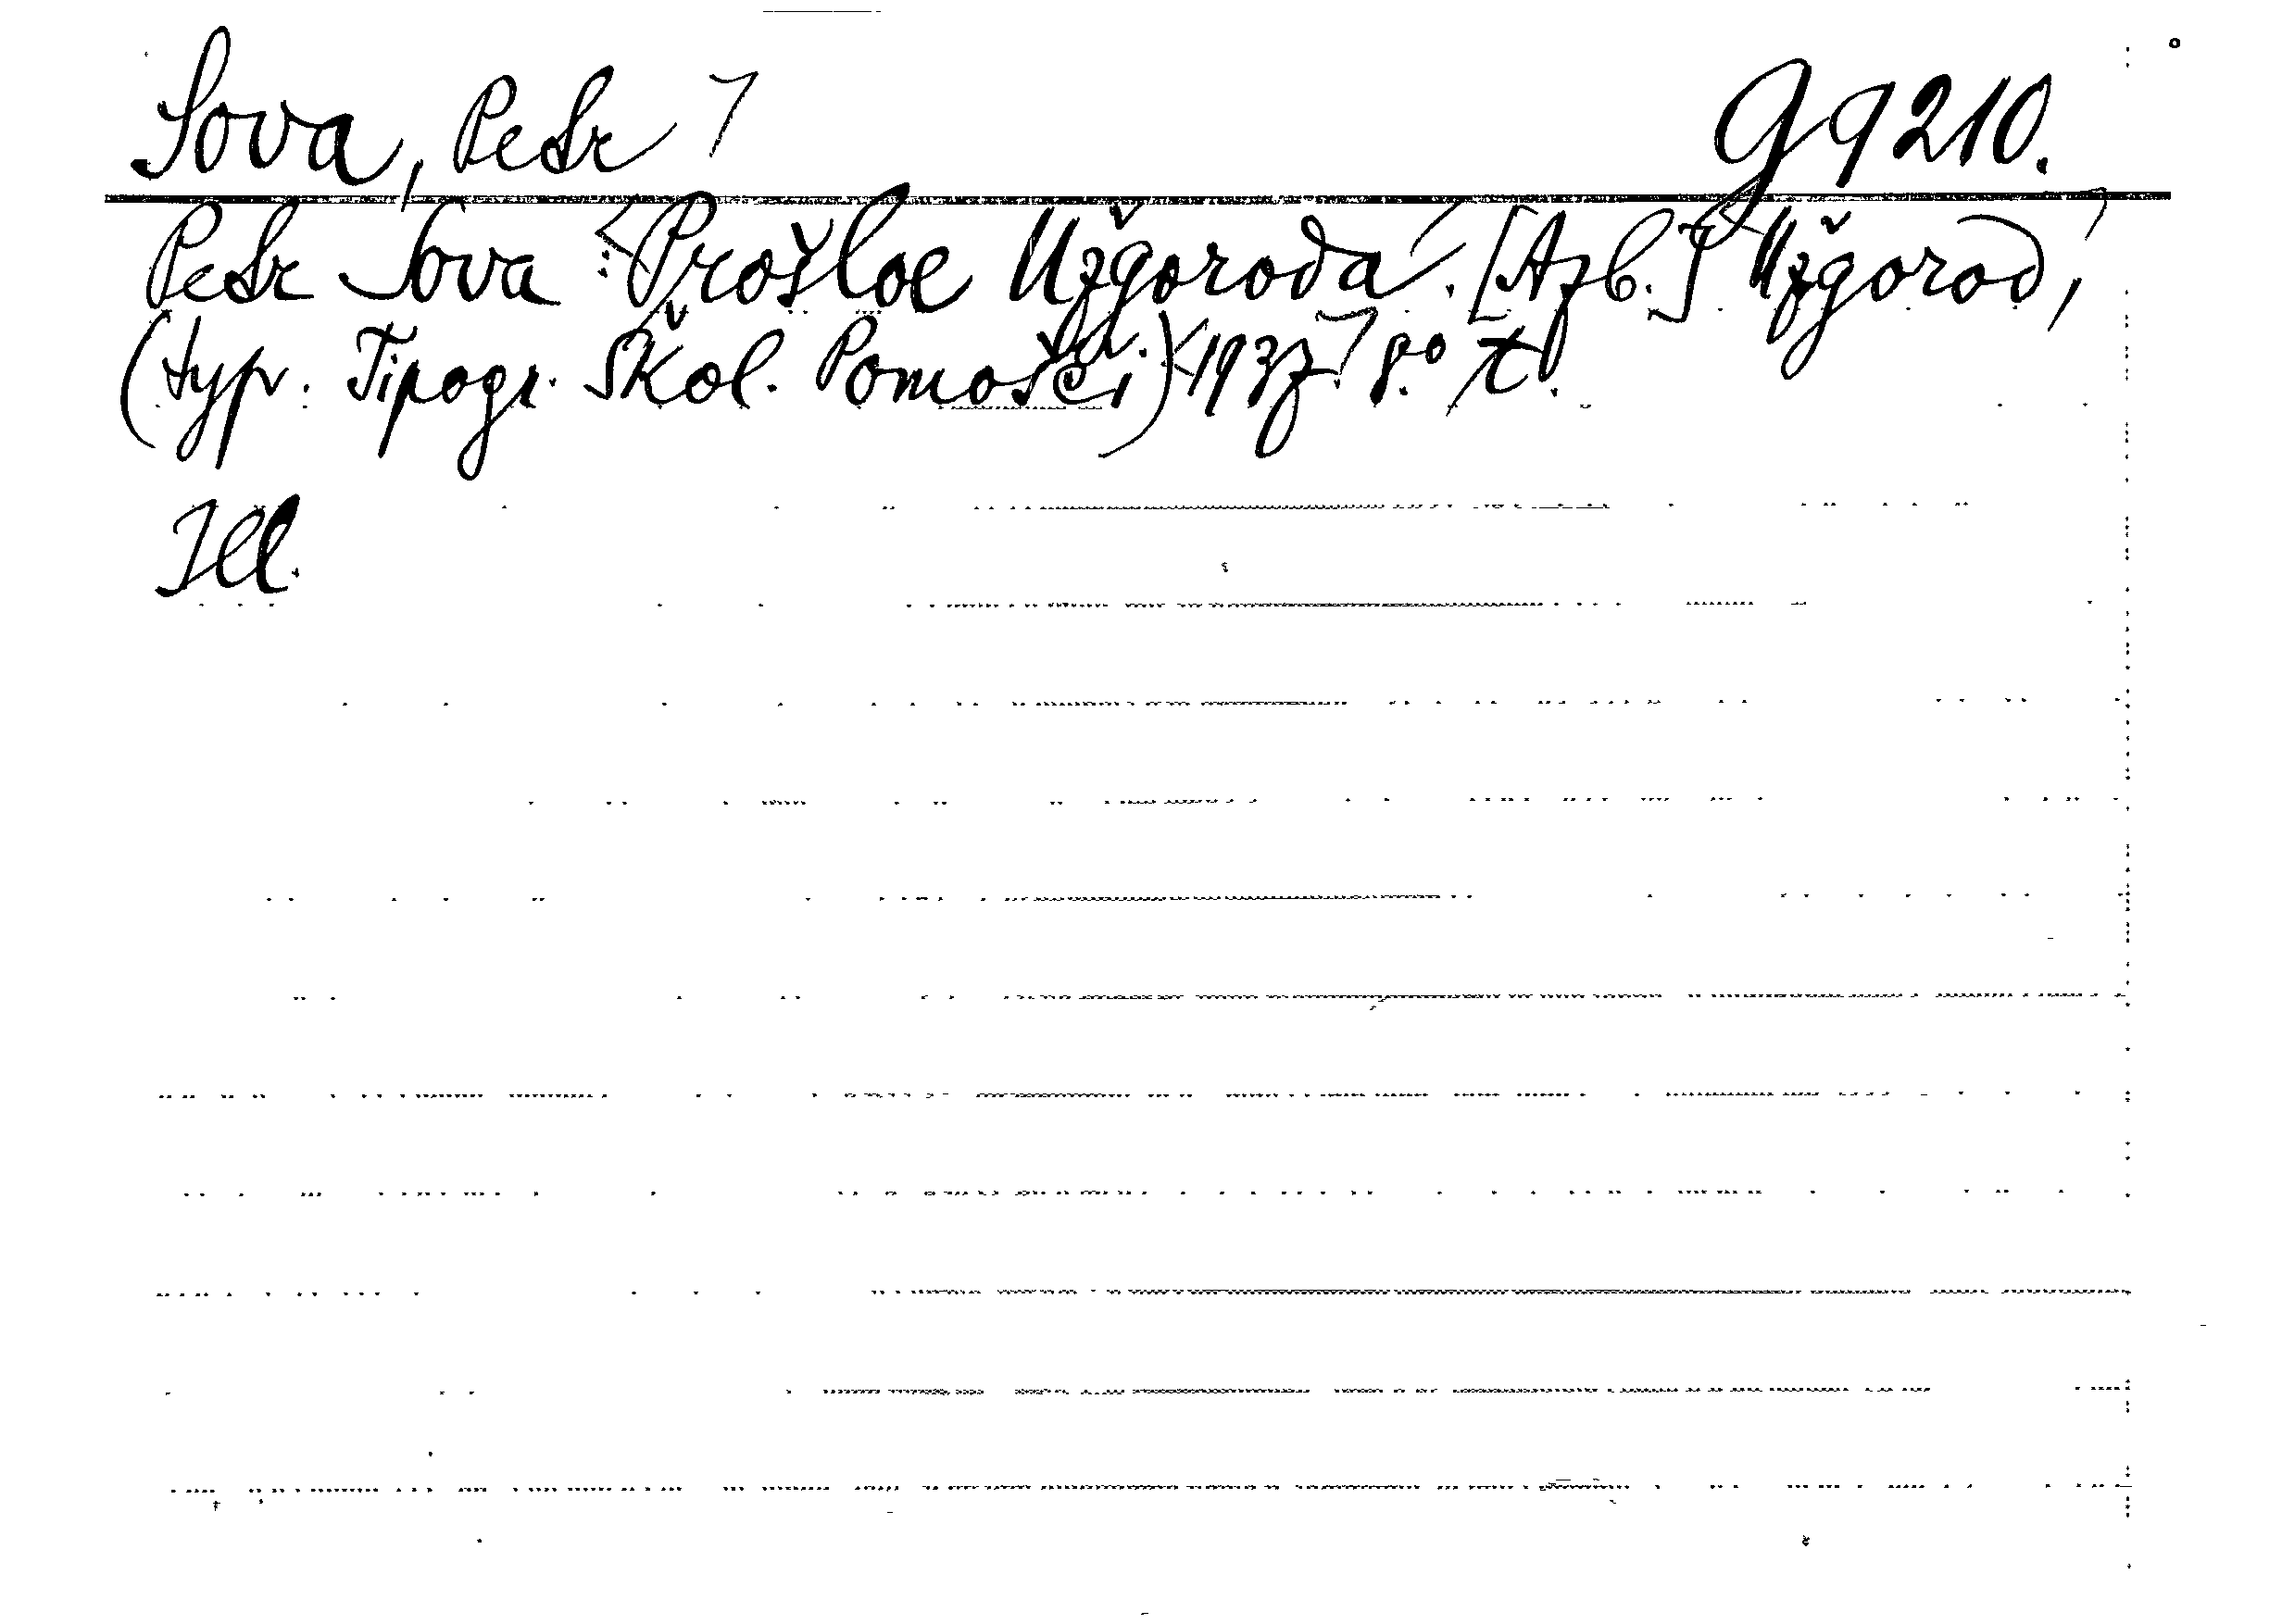 Sova, Petr G 9210.
Petr Sova: Prošloe Užgoroda. [Azb.] Užgorod,
(typ. Tipogr. Škol. Pomošči) 1937. 8.°
Ill.